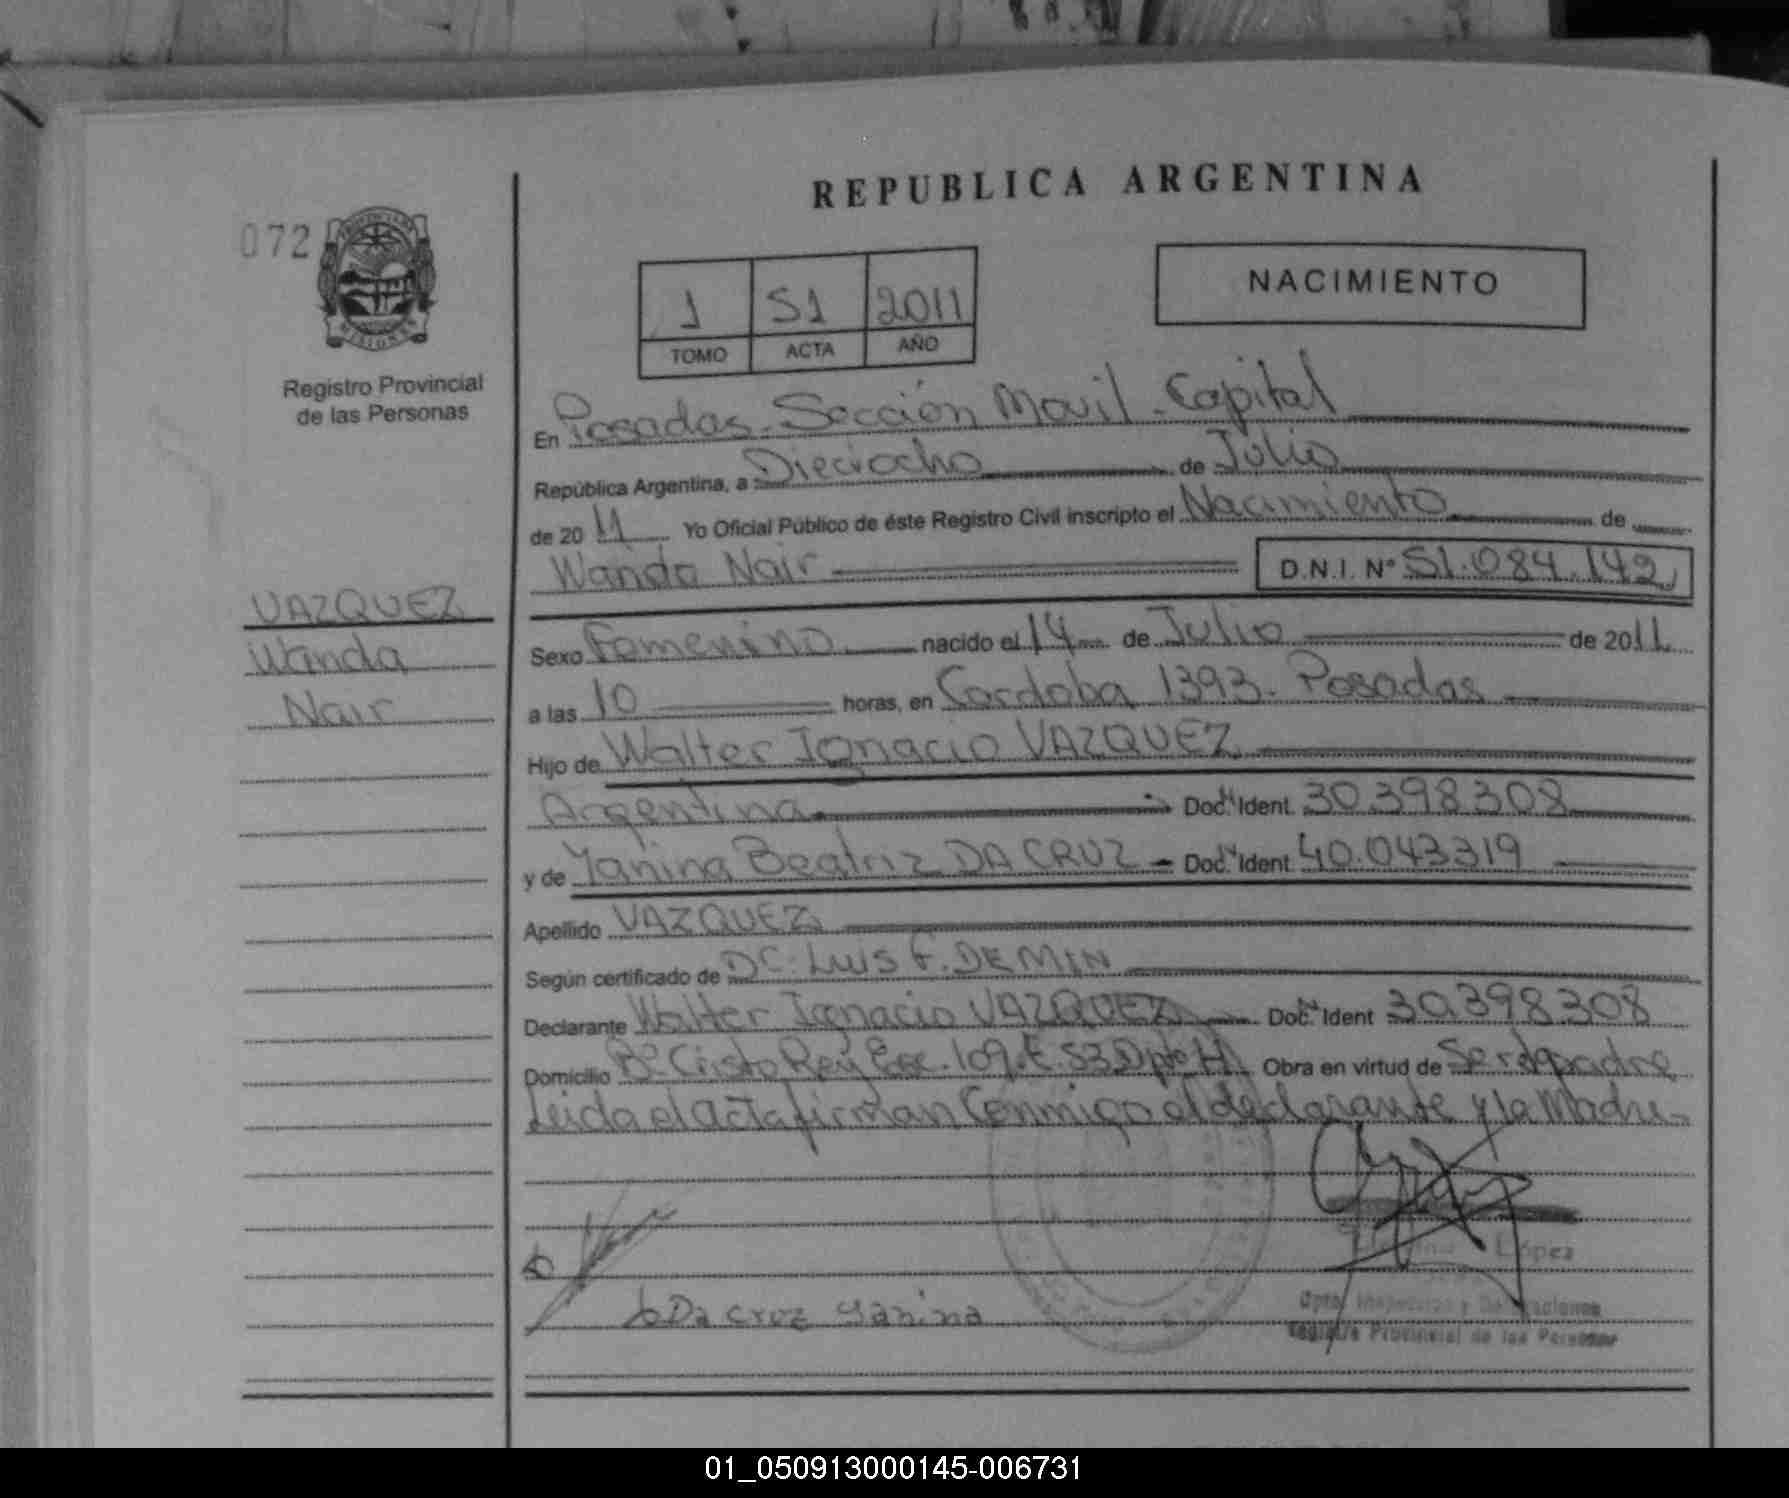 REPUBLICA ARGENTINA
072
Registro Provincial
de las Personas
1 51 2011
TOMO ACTA AÑO
NACIMIENTO
En Posadas. Sección Movil. Capital
República Argentina, a Dieciocho de Julio
de 2011 Yo Oficial Público de éste Registro Civil inscripto el Nacimiento de
Wanda Nair D.N.I. Nº 51.084.142
VAZQUEZ
Wanda
Nair
Sexo Femenino nacido el 14 de Julio de 2011
a las 10 horas, en Cordoba 1393. Posadas
Hijo de Walter Ignacio VAZQUEZ
Argentina Doc. Ident. 30.398.308
y de Yanina Beatriz DA CRUZ Doc. Ident. 40.043319
Apellido VAZQUEZ
Según certificado de Dr. LUIS F. DEMIN
Declarante Walter Ignacio VAZQUEZ Doc. Ident 30.398.308
Domicilio Bº Cristo Rey Esc. 109. E. 53 Dpto H Obra en virtud de Ser el padre
Leida el acta firman Conmigo el declarante y la Madre
López
Da cruz Yanina
Dpto. Inspección y
Registro Provincial de las Personas
01_050913000145-006731